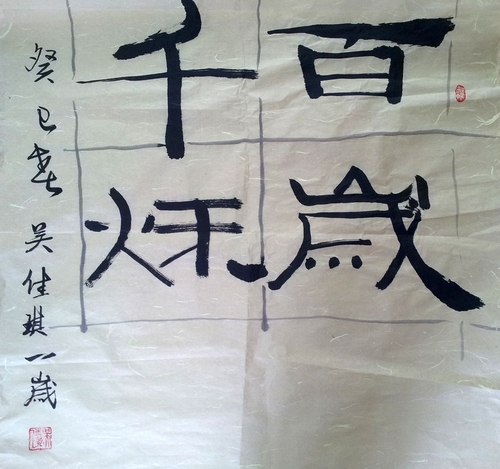 百歲
千秌
癸巳春吴佳琪一歲